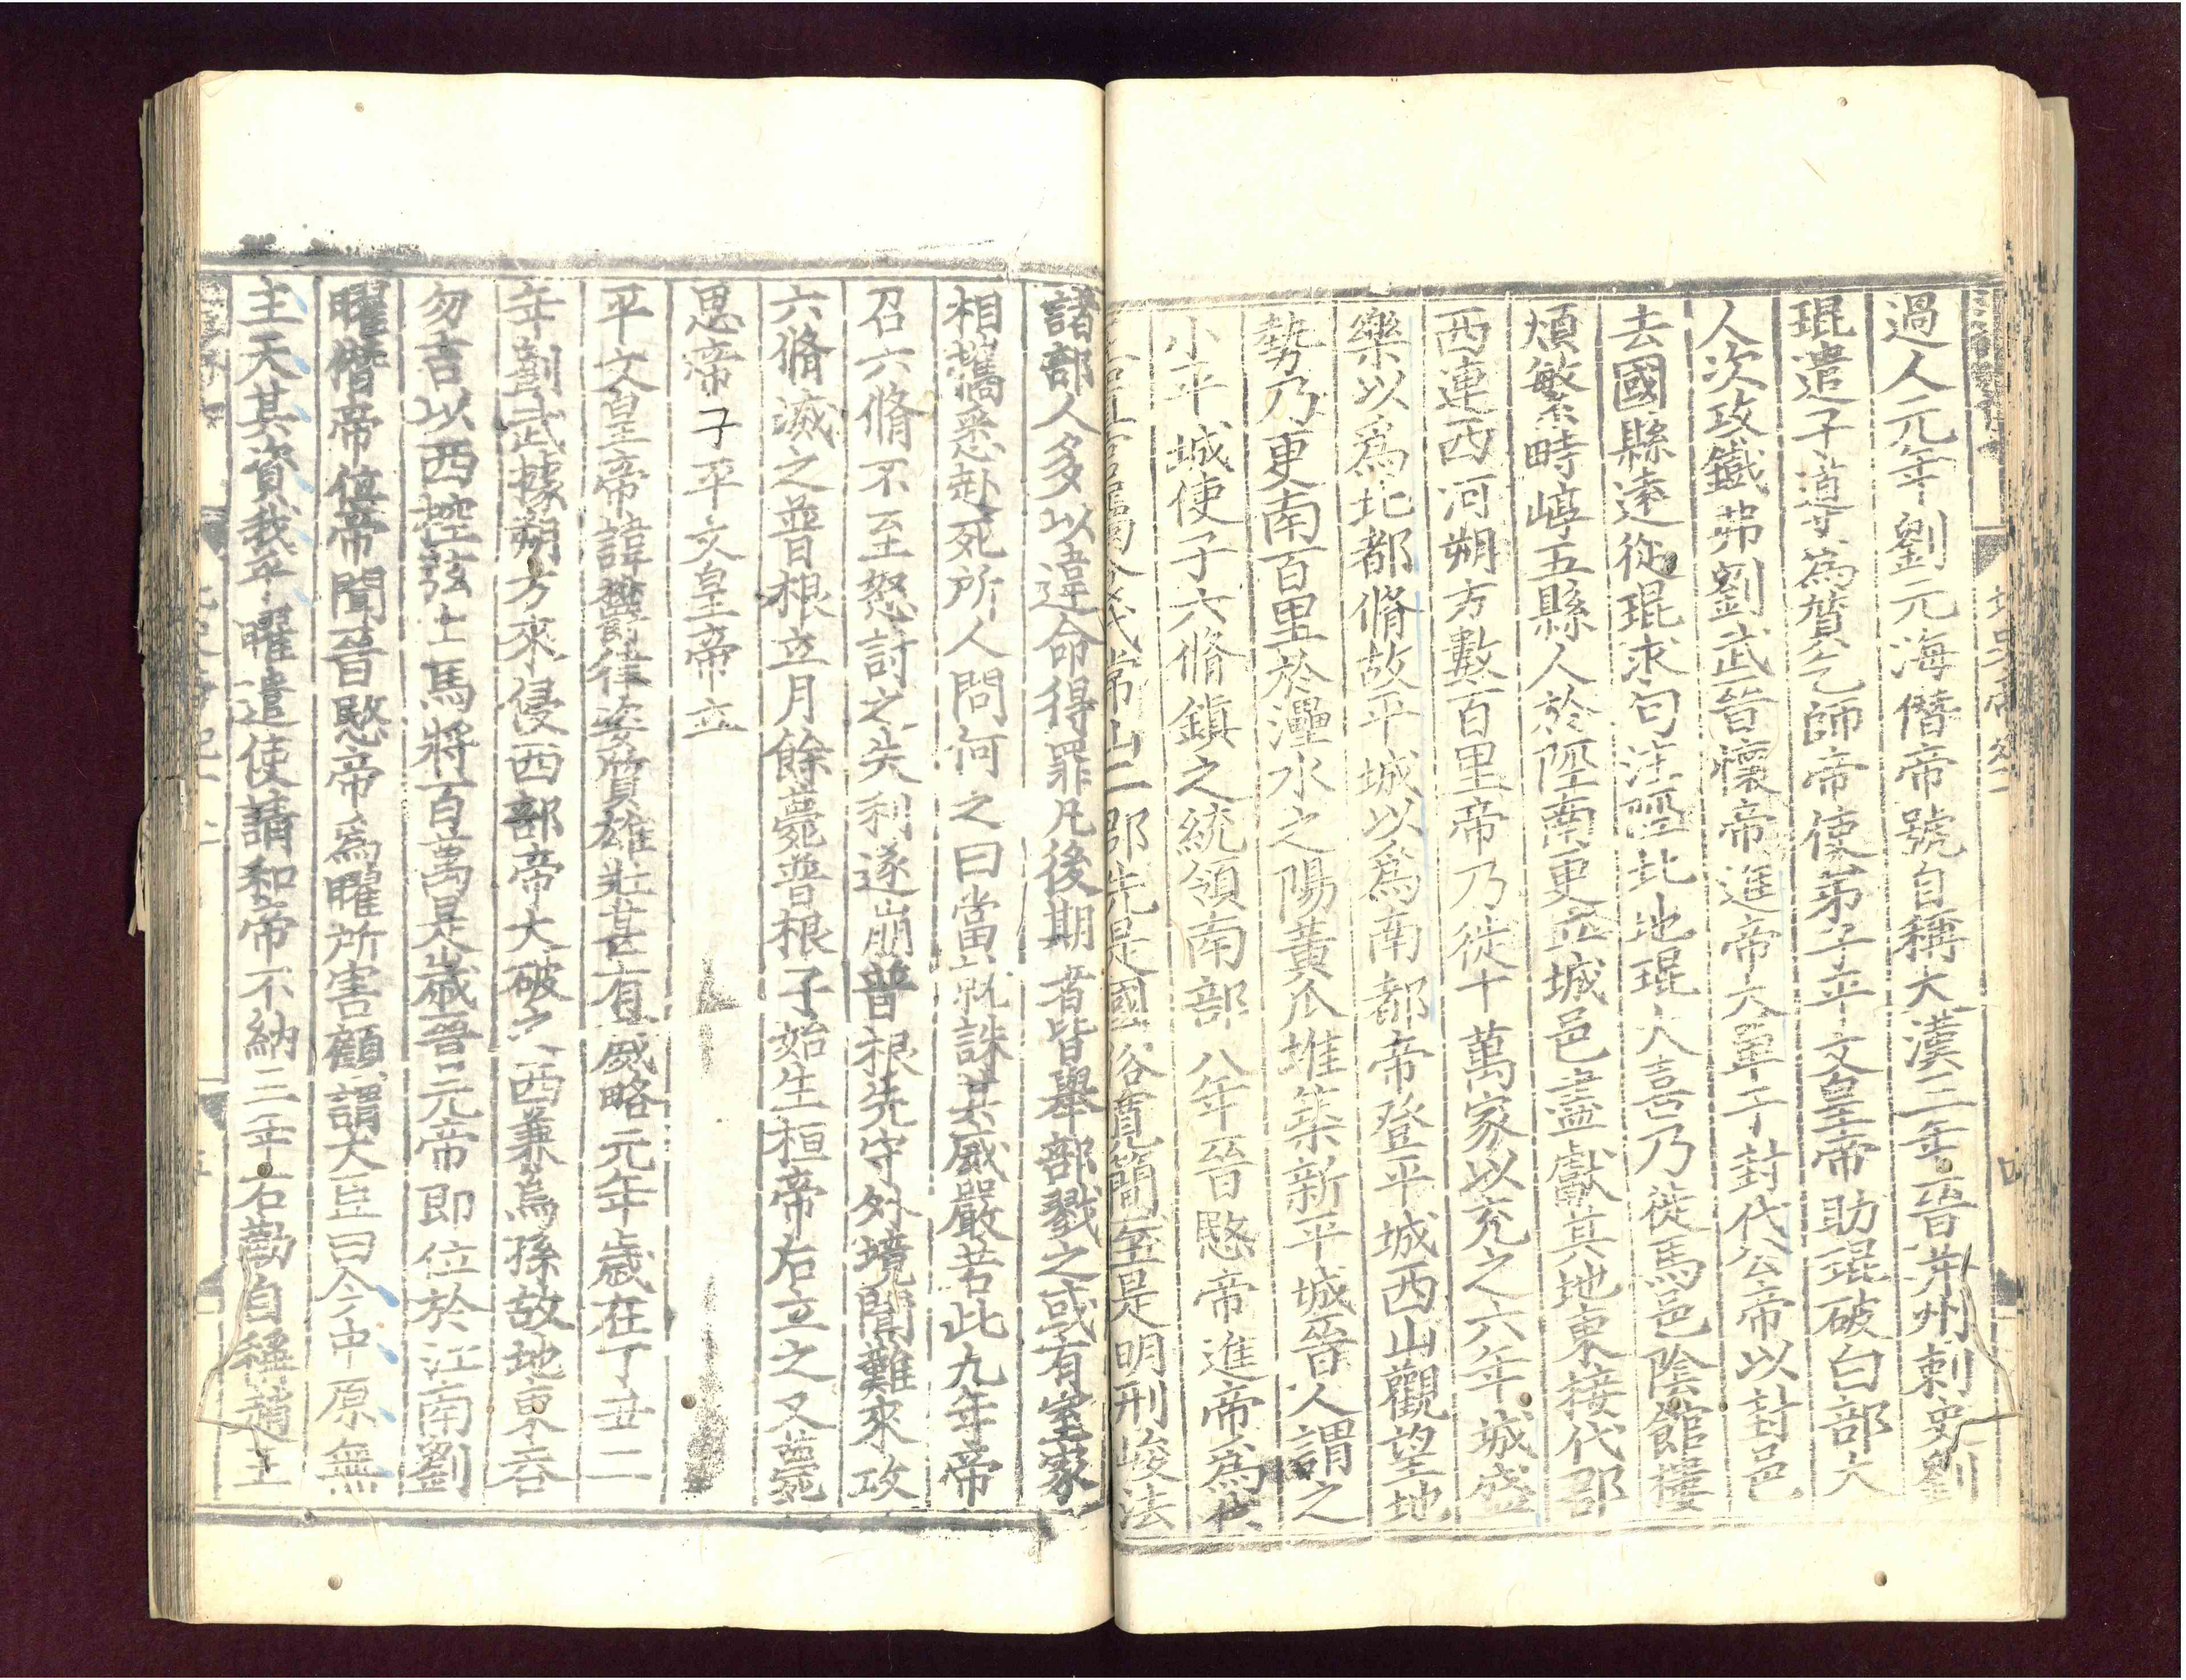 過人元年劉元海僭帝號自稱大漢三年晉并州刺史劉
琨遣子遵爲質乞師帝使弟子平文皇帝助琨破白部大
人次攻鐵弗劉武晉懷帝進帝大單于封代公帝以封邑
去國縣遠從琨求句注陘北地琨大喜乃徙馬邑陰館樓
煩繁畤崞五縣人於陘南更立城邑盡獻其地東接代郡
西連西河朔方數百里帝乃徙十萬家以充之六年城盛
樂以爲北都脩故平城以爲南都帝登平城西山觀望地
勢乃更南百里於灅水之陽黃瓜堆築新平城晉人謂之
小平城使子六脩鎮之統領南部八年晉愍帝進帝爲代
常山二郡先是國俗寬簡至是明刑峻法
諸部人多以違命得罪凡後期者皆舉部戮之或有室家
相攜悉赴死所人問何之曰當就誅其威嚴若此九年帝
召六脩不至怒討之失利遂崩普根先守外境聞難來攻
六脩滅之普根立月餘薨普根子始生桓帝后立之又薨
思帝子平文皇帝立
平文皇帝諱鬱律姿質雄壯甚有威略元年歲在丁丑二
年劉武據朔方來侵西部帝大破之西兼烏孫故地東吞
勿吉以西控弦士馬將百萬是歲晉元帝即位於江南劉
曜僭帝位帝聞晉愍帝爲曜所害顧謂大臣曰今中原無
主天其資我乎曜遣使請和帝不納三年石勒自稱趙王